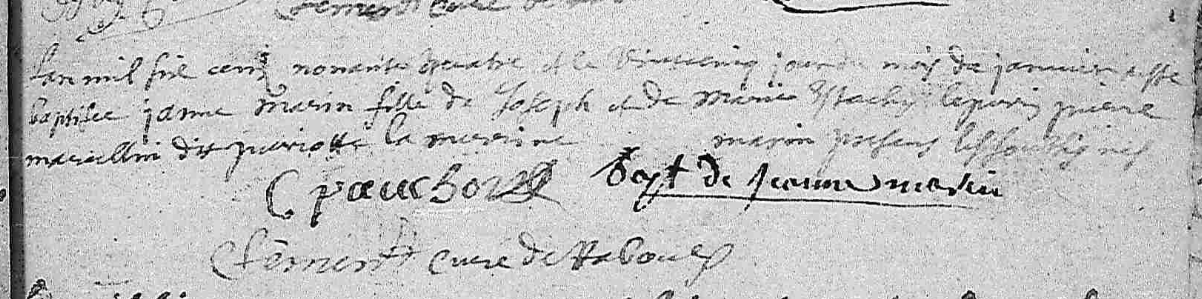 Clement curé de
Lan mil sie cens nonante quatre et le vintcinq jour du mois de janvier a este
baptisée janne marin fille de Joseph et de Marie Estachy le parin pierre
marcellin dit pierrotte la merrine marin presens les soubsignes
Bapt de jeanne marin
Clement curé de